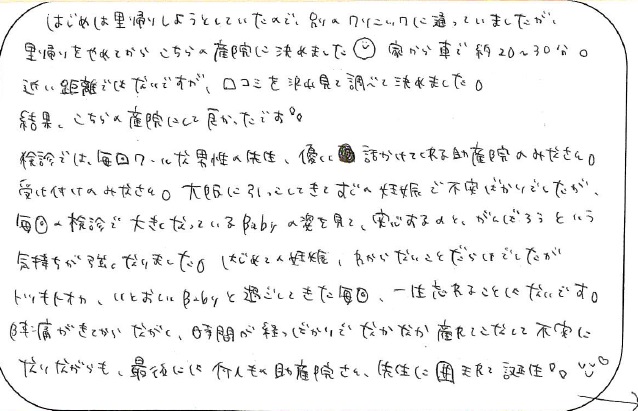 はじめは里帰りしようとしていたので、別のクリニックに通っていましたが、
里帰りをやめてから こちらの産院に決めました 家から車で約20〜30分。
近い距離ではないですが、口コミを沢山見て調べて決めました。
結果、こちらの産院にして良かったです
検診では、毎回クールな男性の先生、優しく 話かけてくれる助産院のみなさん。
受け付けのみなさん。大阪に引っこしてきてすぐの妊娠で不安ばかりでしたが、
毎回の検診で大きくなっているBabyの姿を見て、安心するのと、がんばろうという
気持ちが強くなりました。はじめての妊娠、わからないことだらけでしたが
トツキトオカ、いとおしいBabyと過ごしてきた毎回、一生忘れることはないです。
陣痛がきてから ながく、時間が経つばかりで なかなか産れてこなくて不安に
なりながらも、最後には何人もの助産院さん、先生に囲まれて誕生